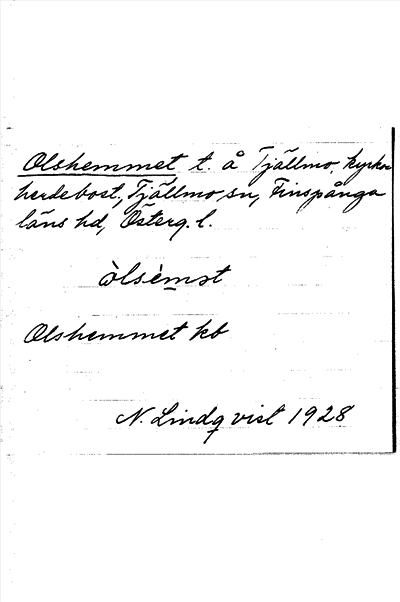 Olshemmet t. å Tjällmo, kyrko-
herdebost., Tjällmo sn, Finspånga
läns hd, Österg. l.
òlsèmət
Olshemmet kb
N. Lindqvist 1928